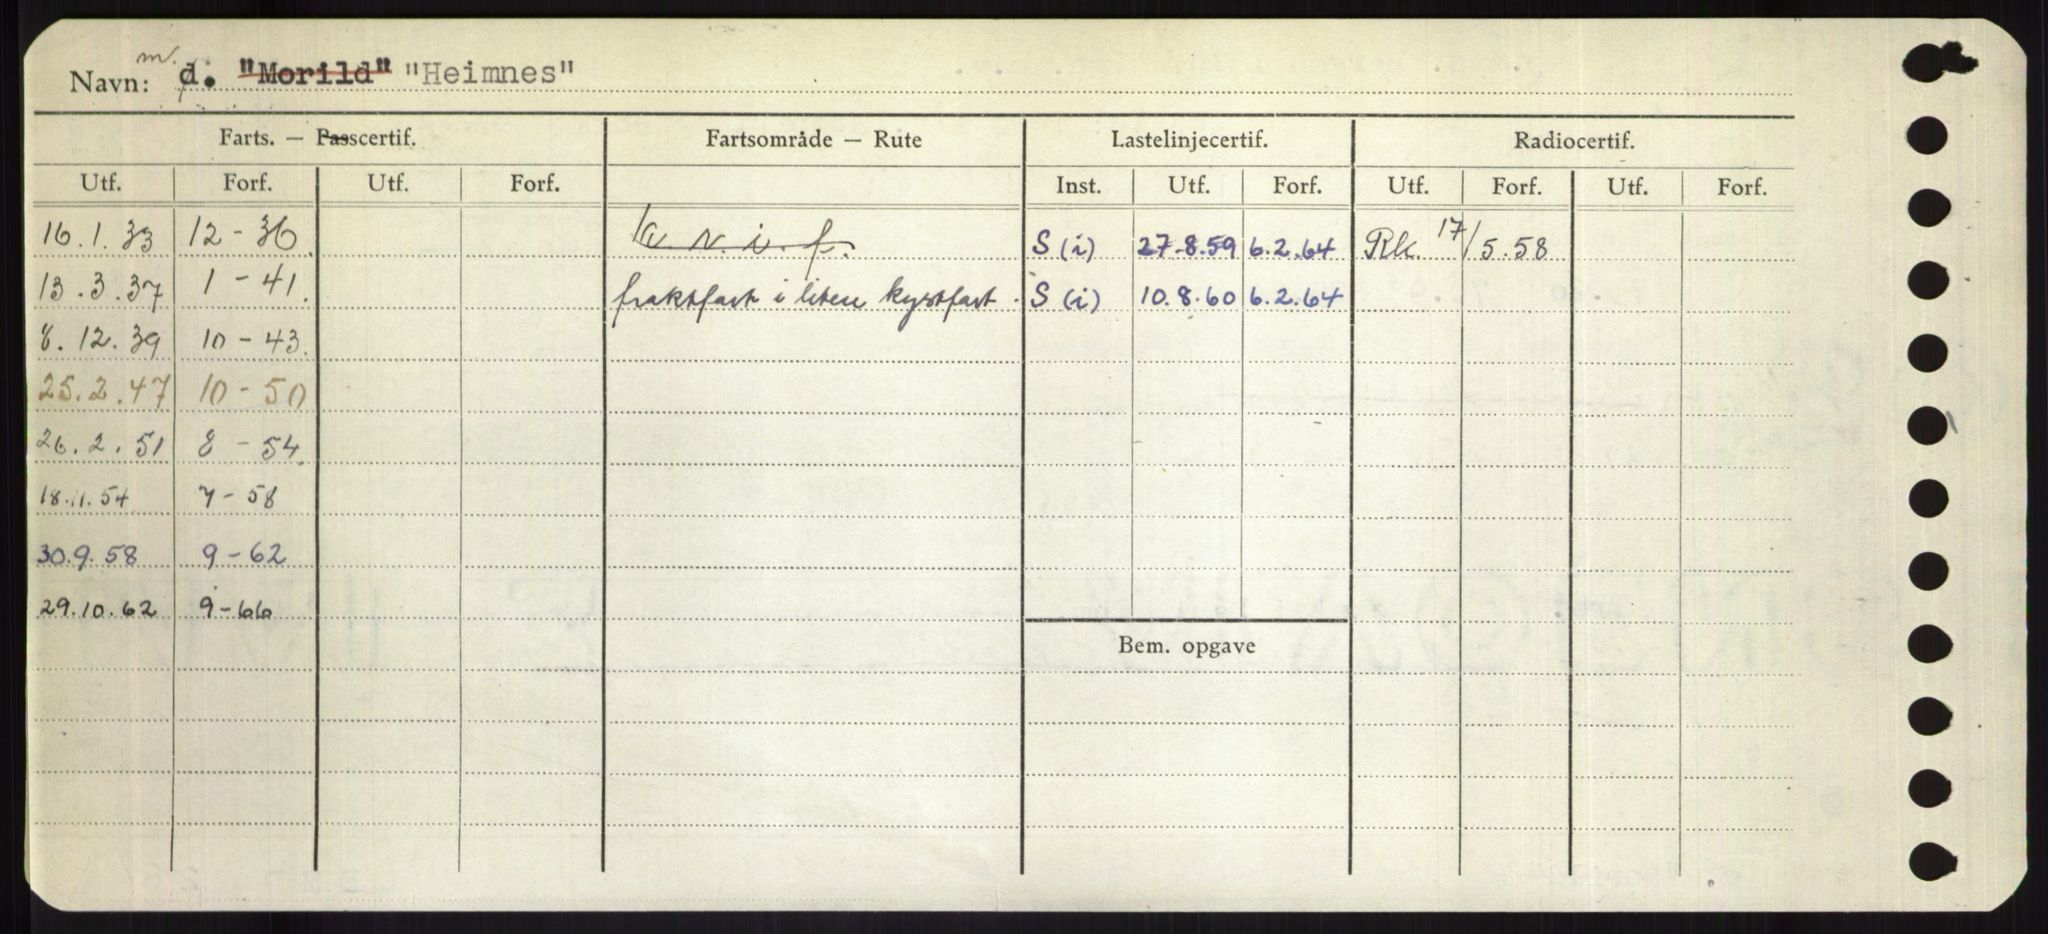 Navn: m. d. "Morild" "Heimnes"
Farts. — Passcertif. Fartsområde — Rute Lastelinjecertif. Radiocertif.
Utf. Forf. Utf. Forf. Inst. Utf. Forf. Utf. Forf. Utf. Forf.
16.1.33 12-36. S (i) 27.8.59 6.2.64 Rk. 17/5.58
13.3.37 1-41. fraktfart i liten kystfart. S (i) 10.8.60 6.2.64
8.12.39 10-43.
25.2.47 10-50
26.2.51 8-54.
18.11.54 7-58
30.9.58 9-62
29.10.62 9-66
Bem. opgave